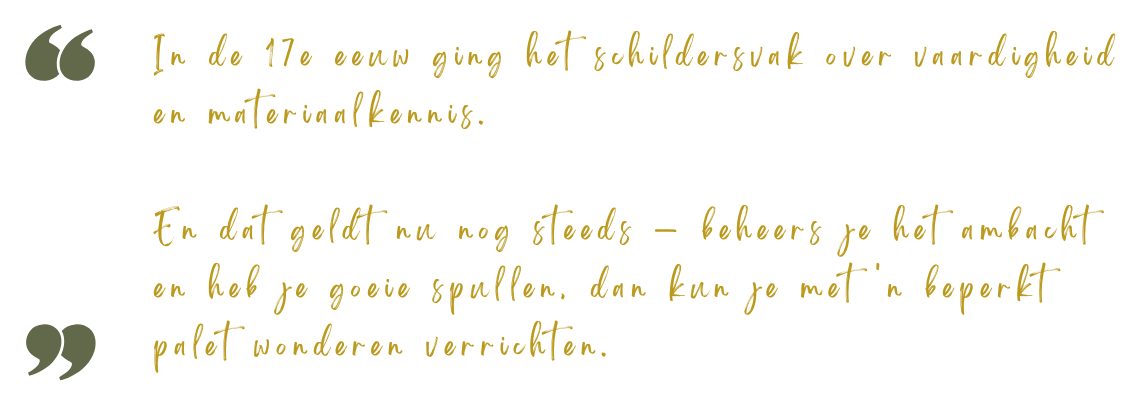 “
In de 17e eeuw ging het schildersvak over vaardigheid
en materiaalkennis.
En dat geldt nu nog steeds – beheers je het ambacht
en heb je goeie spullen, dan kun je met 'n beperkt
palet wonderen verrichten.
”